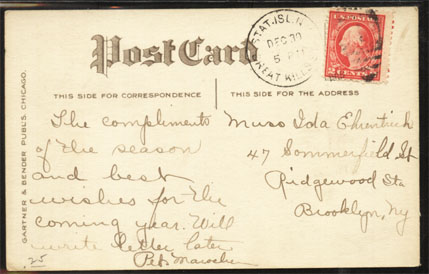 Post Card
STAT.ISL.N
DEC 30
5 P
GREAT KILLS
U.S. POSTAGE
2 CENTS 2
THIS SIDE FOR CORRESPONDENCE
THIS SIDE FOR THE ADDRESS
GARTNER & BENDER PUBL'S. CHICAGO.
The compliments
of the season
and best
wishes for the
coming year. Will
write letter later
Pet
.25
Miss Ida
47 Sommerfield St
Ridgewood Sta
Brooklyn, Ny